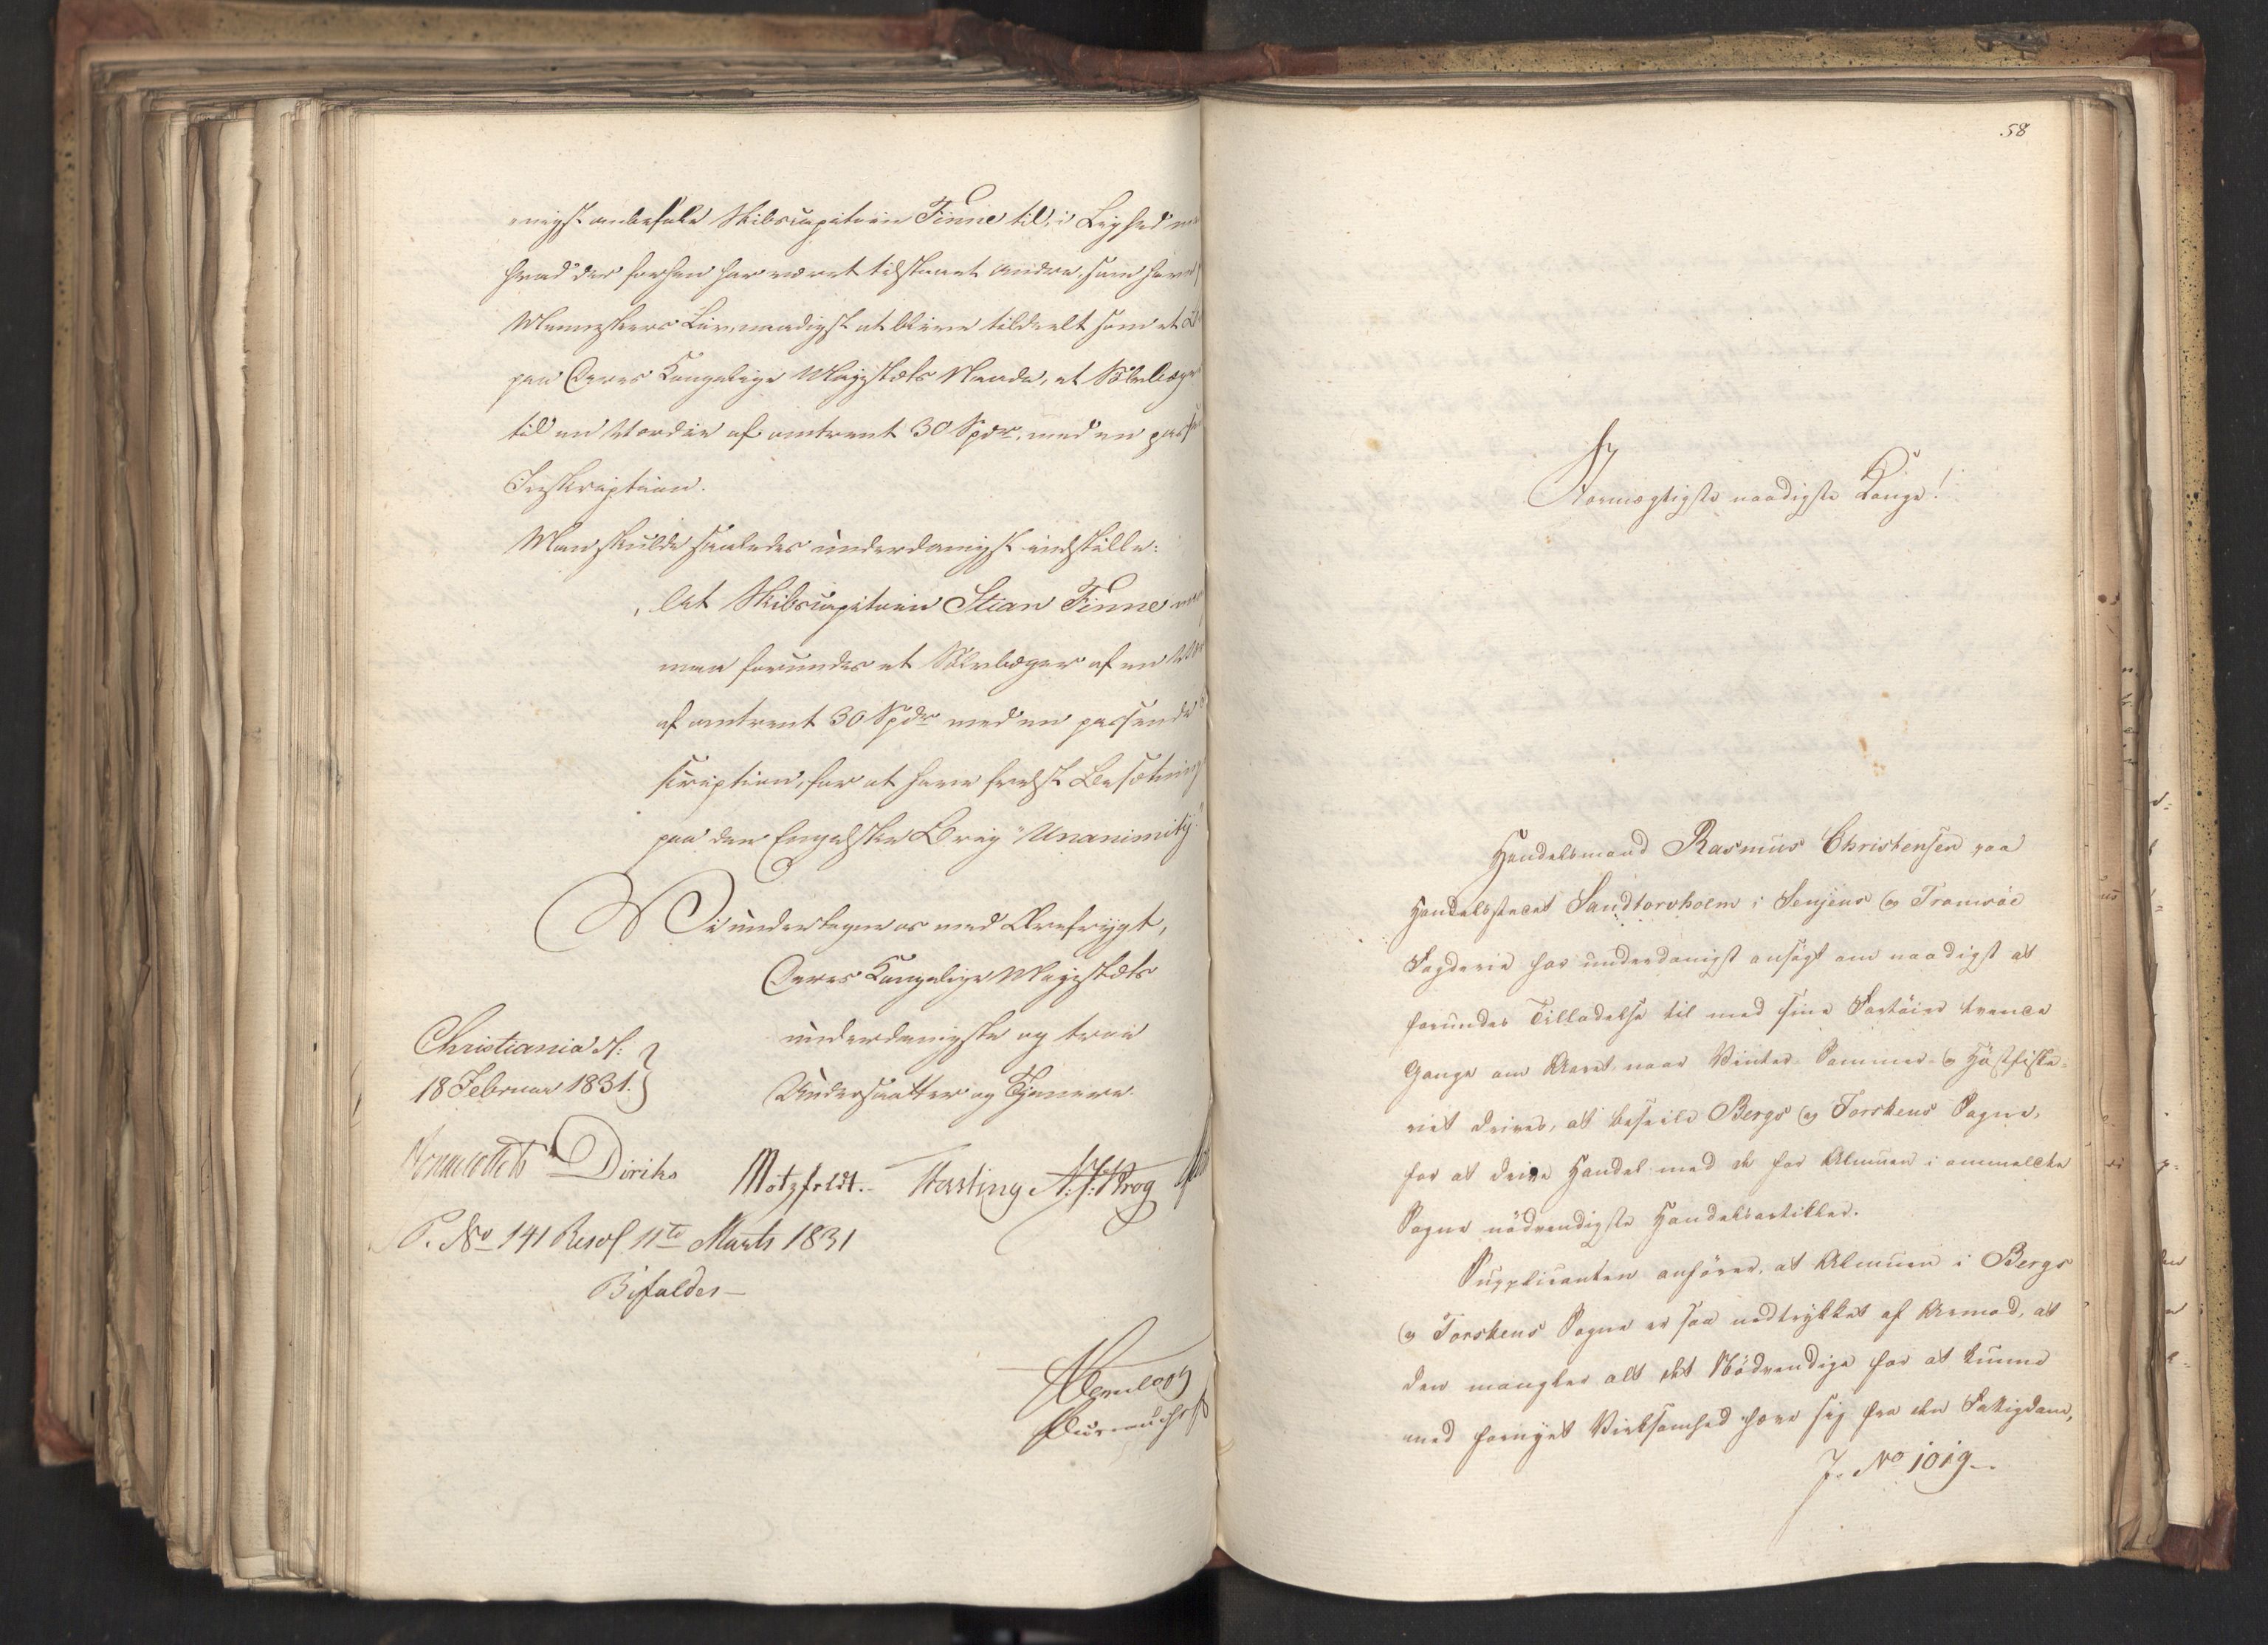 nigst anbefale Skibscapitain Finne til, i Liighed
hvad der forhen har været tilstaaet Andre, som have
Menneskers Liv, naadigst at blive tildeelt som et
paa Deres Kongelige Majestæts Naade, et Sølvbæger
til en Værdie af omtrent 30 Spdr, med en
Inskription.
Man skulde saaledes underdanigst indstille:
"At Skibscapitain Stian Finne
maa forundes et Sølvbæger af en
af omtrent 30 Spdr med en passende
scription, for at have frelst Besætning
paa den Engelske Brig "Unanimity"
Vi undertegne os med Ærefrygt,
Deres Kongelige Majestæts
underdanigste og troe
Undersaatter og Tjenere.
Christiania d:
18 Februar 1831.
Diriks Motzfeldt. Hasting Krog
P. No 141 Resol 11te Marts 1831
Bifaldes
58
Stormægtigste naadigste Konge!
Handelsmand Rasmus Christensen paa
Handelsstedet Sandtorvholm i Senjens og Tromsöe
Fogderie har underdanigst ansøgt om naadigst at
forundes Tilladelse til med sine Fartöier trende
Gange om Aaret, naar Vinter- Sommer- og Høstfiske-
riet drives, at beseile Bergs og Torskens Sogne,
for at drive Handel med de for Almuen i ommeldte
Sogne nödvendigste Handelsartikler.
Supplicanten anförer, at Almuen i Bergs
og Torskens Sogne er saa nedtrykket af Armod, at
den mangler alt det Nödvendige for at kunne
med fornyet Virksomhed hæve sig fra den Fattigdom,
J. No 1019